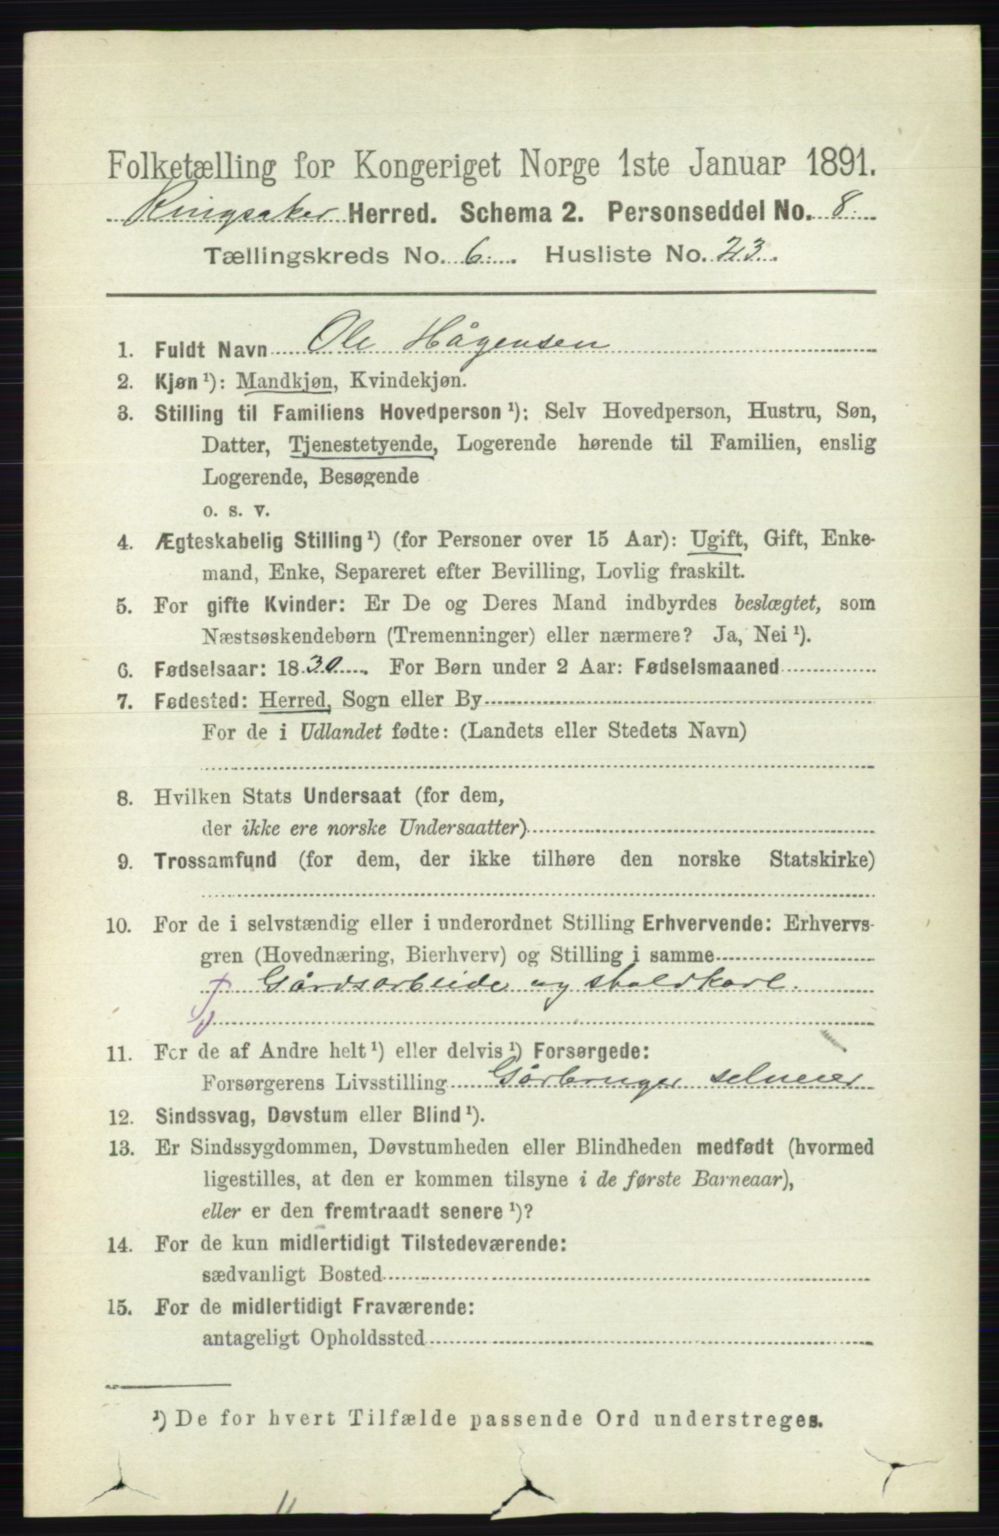 Folketælling for Kongeriget Norge 1ste Januar 1891.
Ringsaker Herred. Schema 2. Personseddel No. 8.
Tællingskreds No. 6. Husliste No. 23.
1. Fuldt Navn Ole Hågensen
2. Kjøn ¹): Mandkjøn, Kvindekjøn.
3. Stilling til Familiens Hovedperson ¹): Selv Hovedperson, Hustru, Søn,
Datter, Tjenestetyende, Logerende hørende til Familien, enslig
Logerende, Besøgende
o. s. v.
4. Ægteskabelig Stilling ¹) (for Personer over 15 Aar): Ugift, Gift, Enke-
mand, Enke, Separeret efter Bevilling, Lovlig fraskilt.
5. For gifte Kvinder: Er De og Deres Mand indbyrdes beslægtet, som
Næstsøskendebørn (Tremenninger) eller nærmere? Ja, Nei ¹).
6. Fødselsaar: 1830. For Børn under 2 Aar: Fødselsmaaned
7. Fødested: Herred, Sogn eller By
For de i Udlandet fødte: (Landets eller Stedets Navn)
8. Hvilken Stats Undersaat (for dem,
der ikke ere norske Undersaatter)
9. Trossamfund (for dem, der ikke tilhøre den norske Statskirke)
10. For de i selvstændig eller i underordnet Stilling Erhvervende: Erhvervs-
gren (Hovednæring, Bierhverv) og Stilling i samme
Gårdsarbeide og staldkarl.
11. For de af Andre helt ¹) eller delvis ¹) Forsørgede:
Forsørgerens Livsstilling Gårbruger selveier
12. Sindssvag, Døvstum eller Blind ¹).
13. Er Sindssygdommen, Døvstumheden eller Blindheden medfødt (hvormed
ligestilles, at den er kommen tilsyne i de første Barneaar),
eller er den fremtraadt senere ¹)?
14. For de kun midlertidigt Tilstedeværende:
sædvanligt Bosted
15. For de midlertidigt Fraværende:
antageligt Opholdssted
¹) De for hvert Tilfælde passende Ord understreges.